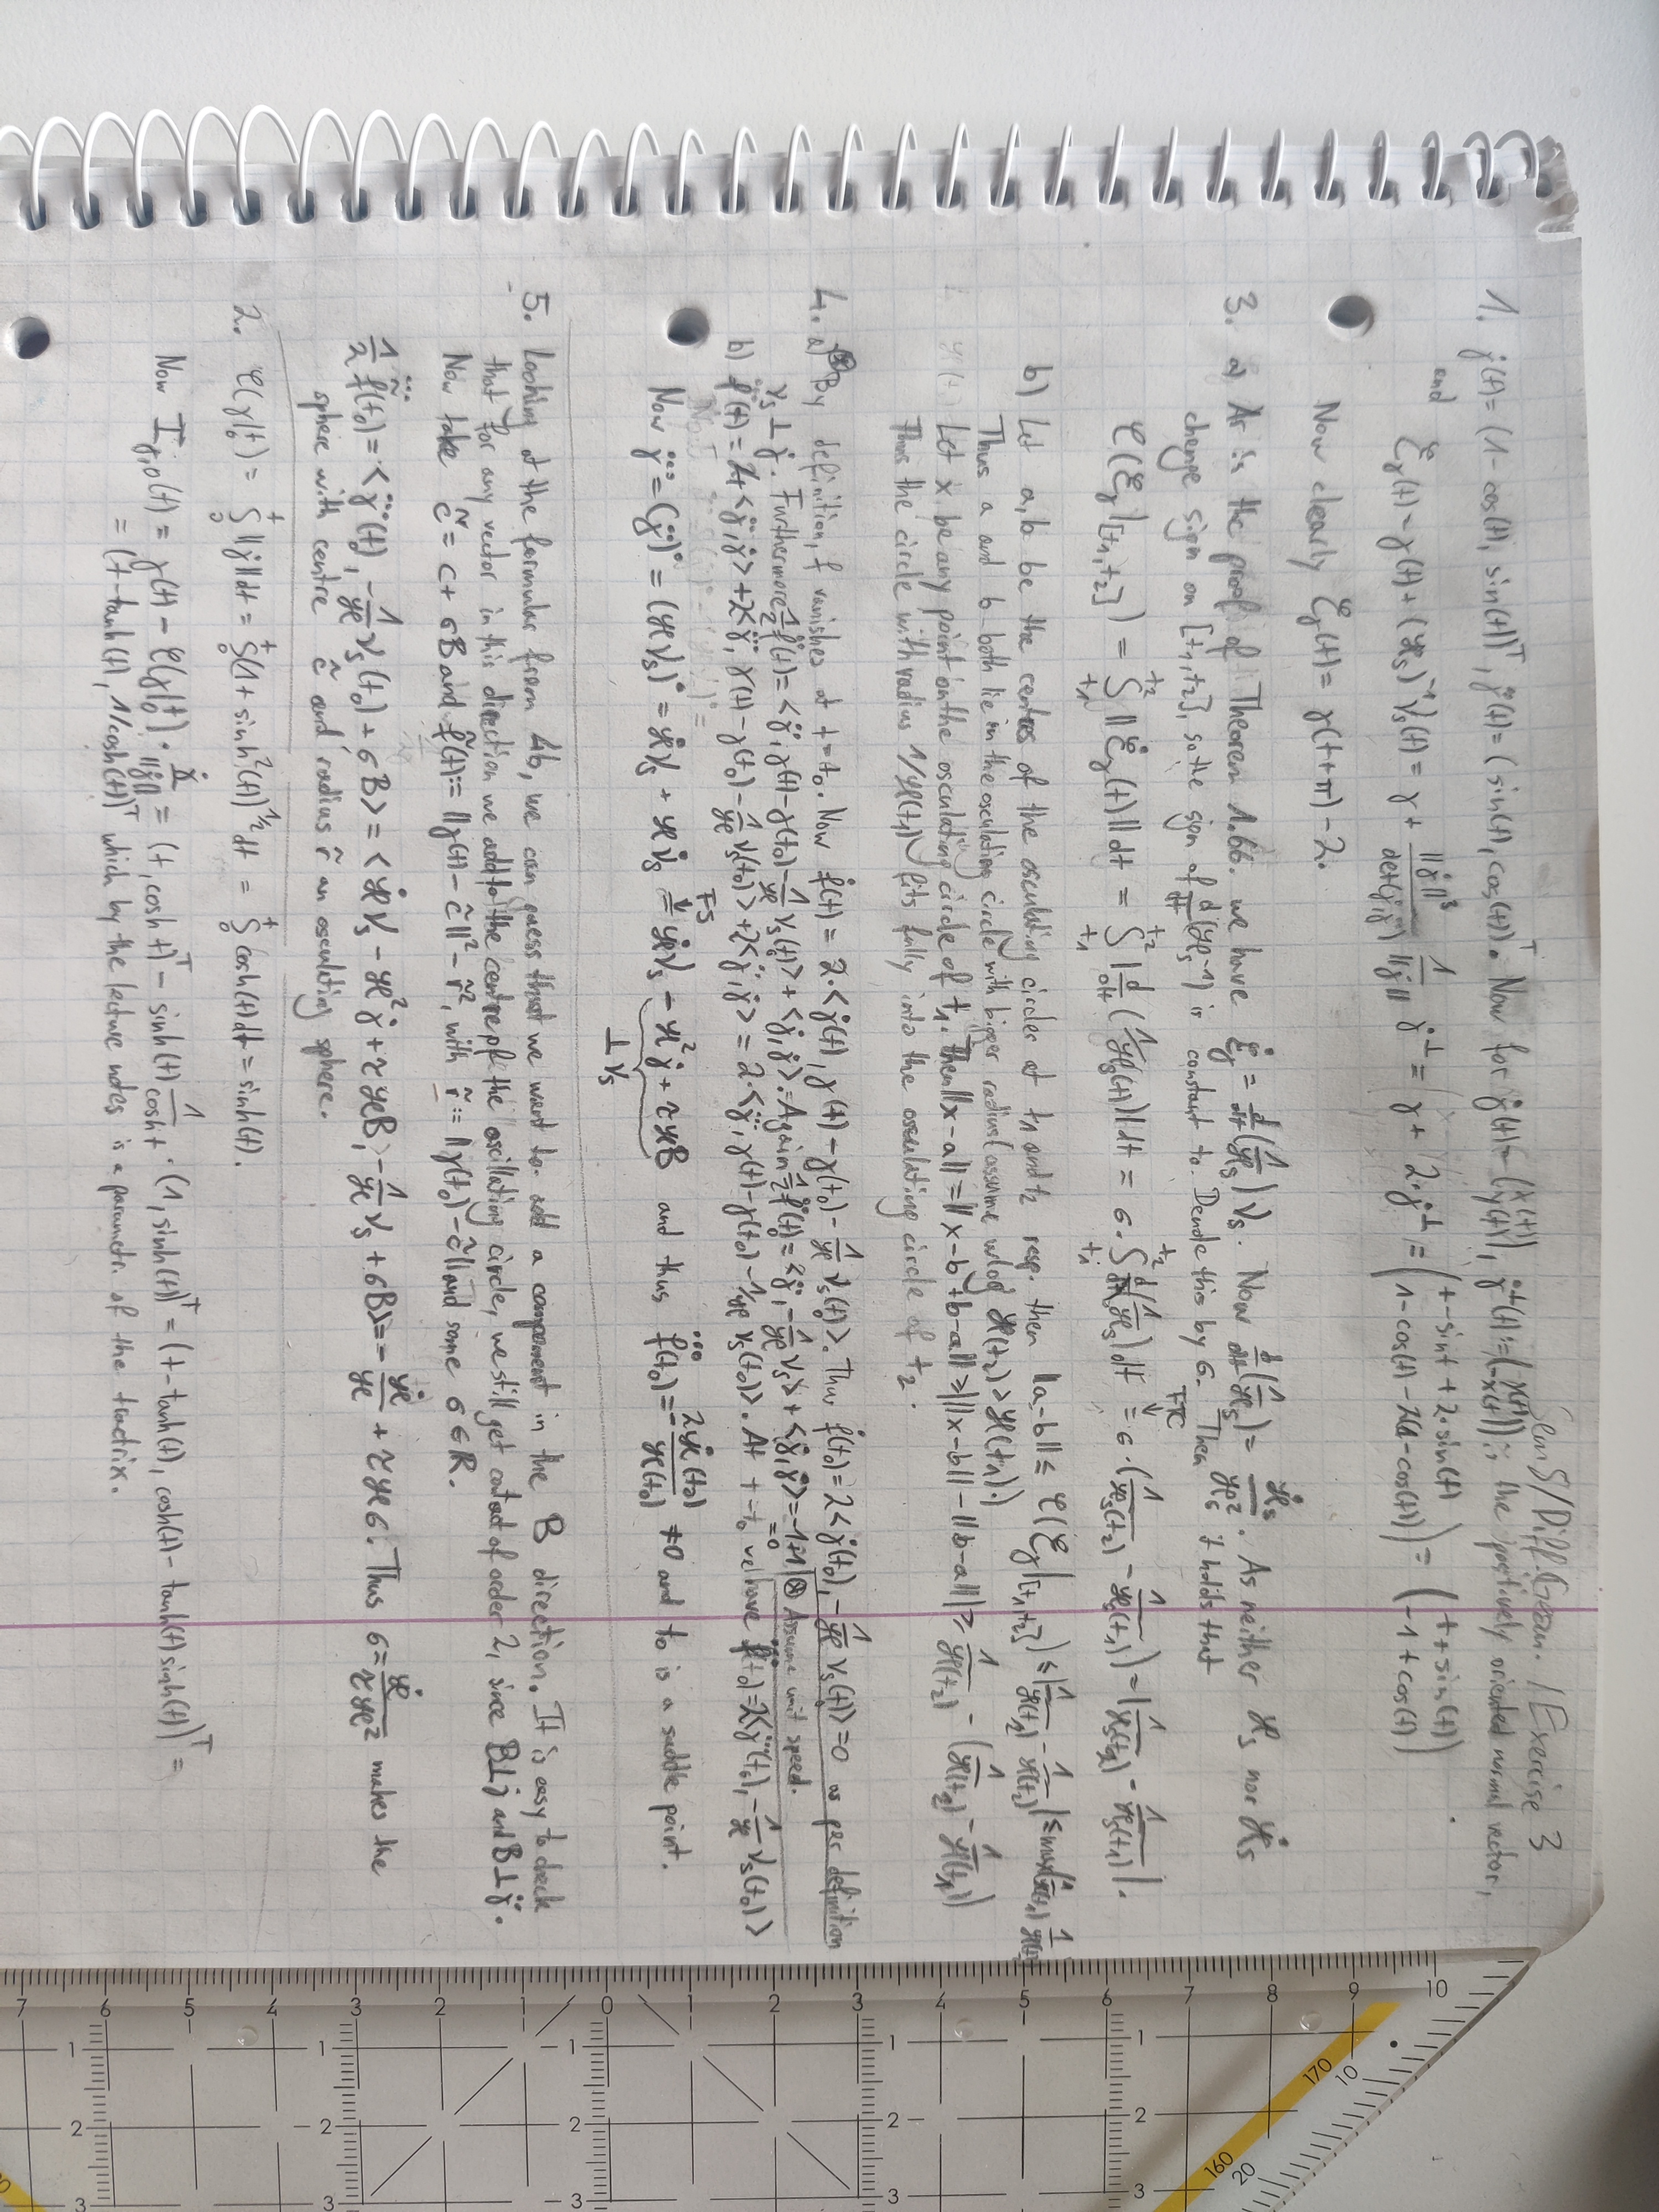 Jens S/Diff Geom. / Exercise 3
1. γ̇(t) = (1-cos(t), sin(t))ᵀ, γ̈(t) = (sin(t), cos(t))ᵀ. Now for γ̇(t) = (x(t), y(t)), γ̇^⊥(t) := (-y(t), x(t)); the positively oriented normal vector,
and ξ_γ(t) = γ(t) + (ϰ_s)⁻¹ ν_s(t) = γ + ||γ̇||³/det(γ̇,γ̈) 1/||γ̇|| γ̇^⊥ = γ + 2·γ̇^⊥ = (t - sin t + 2·sin(t), 1 - cos(t) - 2(1-cos(t))) = (t + sin(t), -1 + cos(t)).
Now clearly ξ_γ(t) = γ(t+π) - 2.
3. a) As in the proof of Theorem 1.66. we have ξ̇_γ = d/dt(1/ϰ_s) ν_s. Now d/dt(1/ϰ_s) = ϰ̇_s/ϰ_s². As neither ϰ_s nor ϰ̇_s
change sign on [t₁,t₂], so the sign of d/dt(ϰ_s⁻¹) is constant to. Denote this by σ. Then it holds that
ℓ(ξ_γ|[t₁,t₂]) = ∫_{t₁}^{t₂} ||ξ̇_γ(t)|| dt = ∫_{t₁}^{t₂} |d/dt (1/ϰ_s(t))| dt = σ·∫_{t₁}^{t₂} d/dt(1/ϰ_s) dt = FTC σ·(1/ϰ_s(t₂) - 1/ϰ_s(t₁)) = |1/ϰ_s(t₂) - 1/ϰ_s(t₁)|.
b) Let a, b be the centres of the osculating circles at t₁ and t₂ resp. then ||a-b|| ≤ ℓ(ξ_γ|[t₁,t₂]) ≤ |1/ϰ(t₂) - 1/ϰ(t₁)| ≤ max(1/ϰ(t₁), 1/ϰ(t₂))
Thus a and b both lie in the osculating circle with bigger radius (assume wlog ϰ(t₂) > ϰ(t₁).)
Let x be any point on the osculating circle of t₁. Then ||x-a|| = ||x-b+b-a|| ≥ | ||x-b|| - ||b-a|| | ≥ 1/ϰ(t₂) - (1/ϰ(t₂) - 1/ϰ(t₁))
Thus the circle with radius 1/ϰ(t₁) fits fully into the osculating circle of t₂.
4. a) By definition, f vanishes at t = t₀. Now ḟ(t) = 2·<γ̇(t), γ(t) - γ(t₀) - 1/ϰ ν_s(t₀)>. Thus ḟ(t₀) = 2<γ̇(t₀), -1/ϰ ν_s(t₀)> = 0 as per definition
ν_s ⊥ γ̇. Furthermore 1/2 f̈(t) = <γ̈, γ(t) - γ(t₀) - 1/ϰ ν_s(t₀)> + <γ̇,γ̇>. Again 1/2 f̈(t₀) = <γ̈, -1/ϰ ν_s> + <γ̇,γ̇> = -1+1 = 0 ⊗ Assume unit speed.
b) f⃛(t) = 2<γ̈,γ̇> + 2<γ⃛, γ(t) - γ(t₀) - 1/ϰ ν_s(t₀)> + 2<γ̈,γ̇> = 2·<γ⃛, γ(t) - γ(t₀) - 1/ϰ ν_s(t₀)>. At t = t₀ we have f⃛(t₀) = 2<γ⃛(t₀), -1/ϰ ν_s(t₀)>
Now γ⃛ = (γ̈)˙ = (ϰν_s)˙ = ϰ̇ν_s + ϰν̇_s = FS ϰ̇ν_s - ϰ²γ̇ + τϰB and thus f⃛(t₀) = -2ϰ̇(t₀)/ϰ(t₀) ≠ 0 and t₀ is a saddle point.
⊥ ν_s
5. Looking at the formular from 4b, we can guess that we want to add a component in the B direction. It is easy to check
that for any vector in this direction we add to the centre of the oscillating circle, we still get contact of order 2, since B⊥γ̇ and B⊥γ̈.
Now take c̃ = c + σB and f̃(t) := ||γ(t) - c̃||² - r̃², with r̃ := ||γ(t₀) - c̃|| and some σ ∈ ℝ.
1/2 f̃⃛(t₀) = <γ⃛(t₀), -1/ϰ ν_s(t₀) + σB> = <ϰ̇ν_s - ϰ²γ̇ + τϰB, -1/ϰ ν_s + σB> = -ϰ̇/ϰ + τϰσ. Thus σ = ϰ̇/τϰ² makes the
sphere with centre c̃ and radius r̃ an osculating sphere.
2. ℓ(γ|₀ᵗ) = ∫₀ᵗ ||γ̇|| dt = ∫₀ᵗ (1 + sinh²(t))^{1/2} dt = ∫₀ᵗ cosh(t) dt = sinh(t).
Now I_{γ,0}(t) = γ(t) - ℓ(γ|₀ᵗ) · γ̇/||γ̇|| = (t, cosh t)ᵀ - sinh(t) 1/cosh t · (1, sinh(t))ᵀ = (t - tanh(t), cosh(t) - tanh(t) sinh(t))ᵀ =
= (t - tanh(t), 1/cosh(t))ᵀ which by the lecture notes is a parametr. of the tractrix.
7 6 5 4 3 2 1 0 1 2 3 4 5 6 7 8 9 10
1 1 1 1
2 2 2 2
3 3 3 3
170 10
160 20